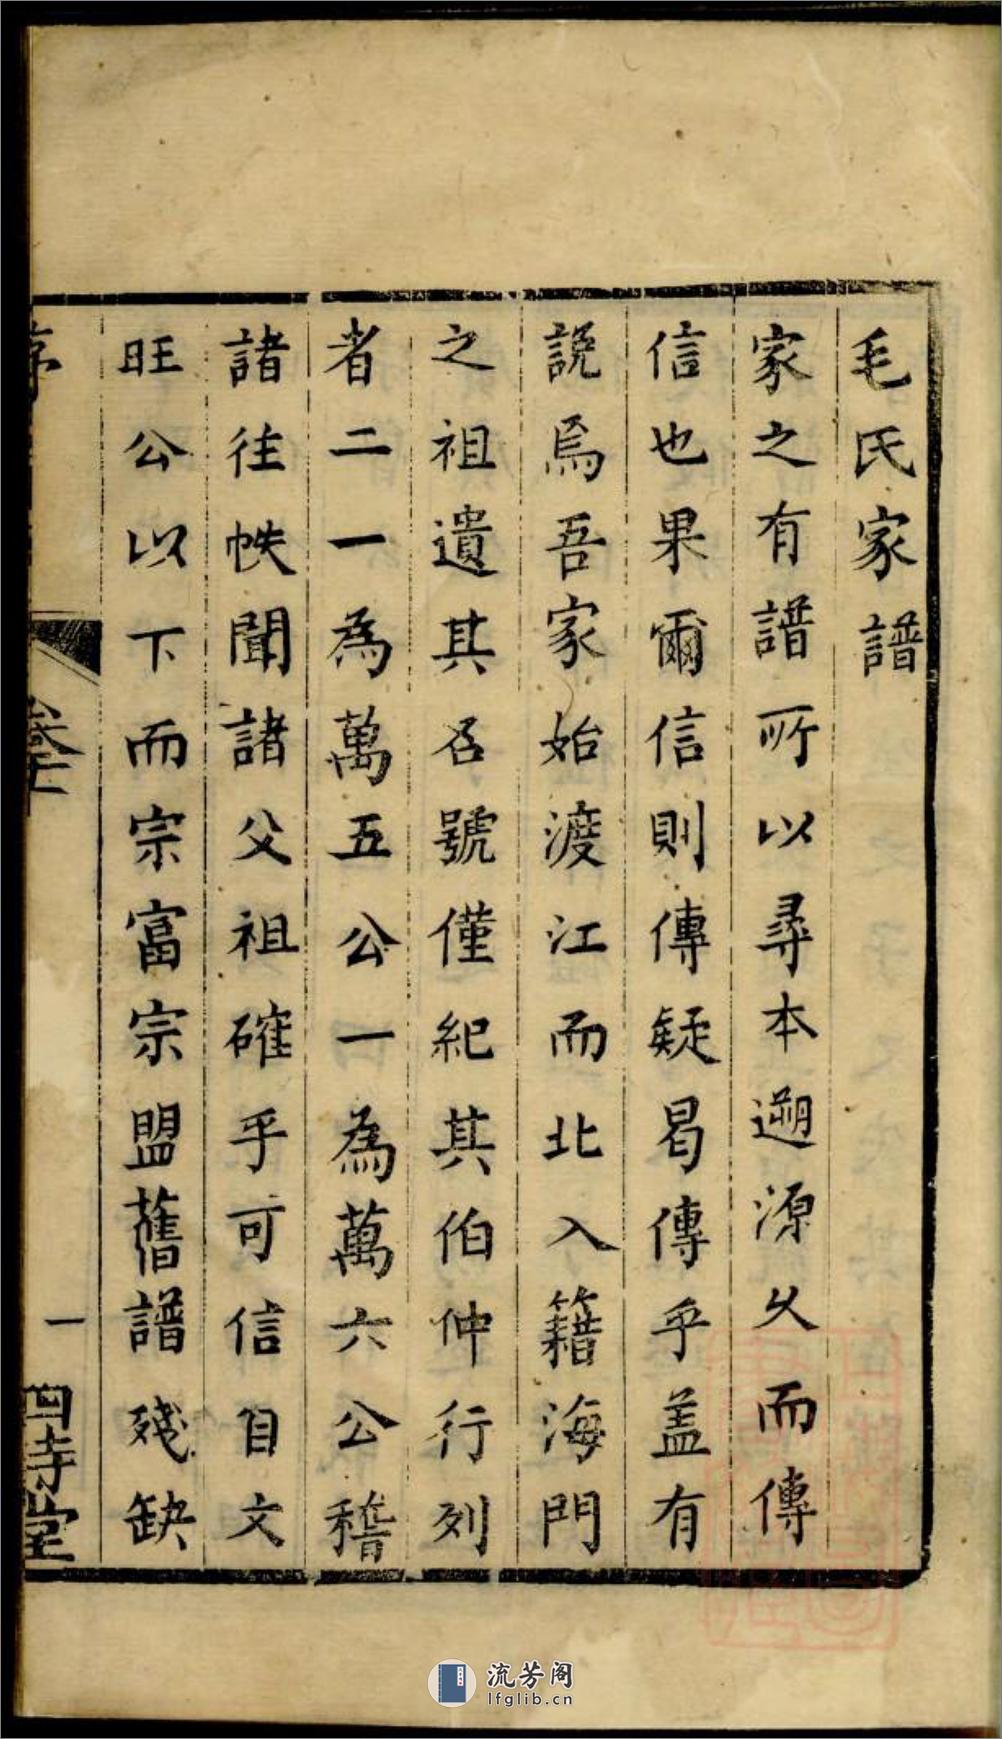 毛氏家譜
家之有譜所以尋本遡源久而傳
信也果爾信信則傳疑曷傳乎盖有
說焉吾家始渡江而北入籍海門
之祖遺其名號僅紀其伯仲行列
者二一為萬五公一為萬六公稽
諸往帙聞諸父祖確乎可信自文
旺公以下而宗富宗盟舊譜殘缺
序
卷十一
一
堂
流芳阁
lfglib.cn